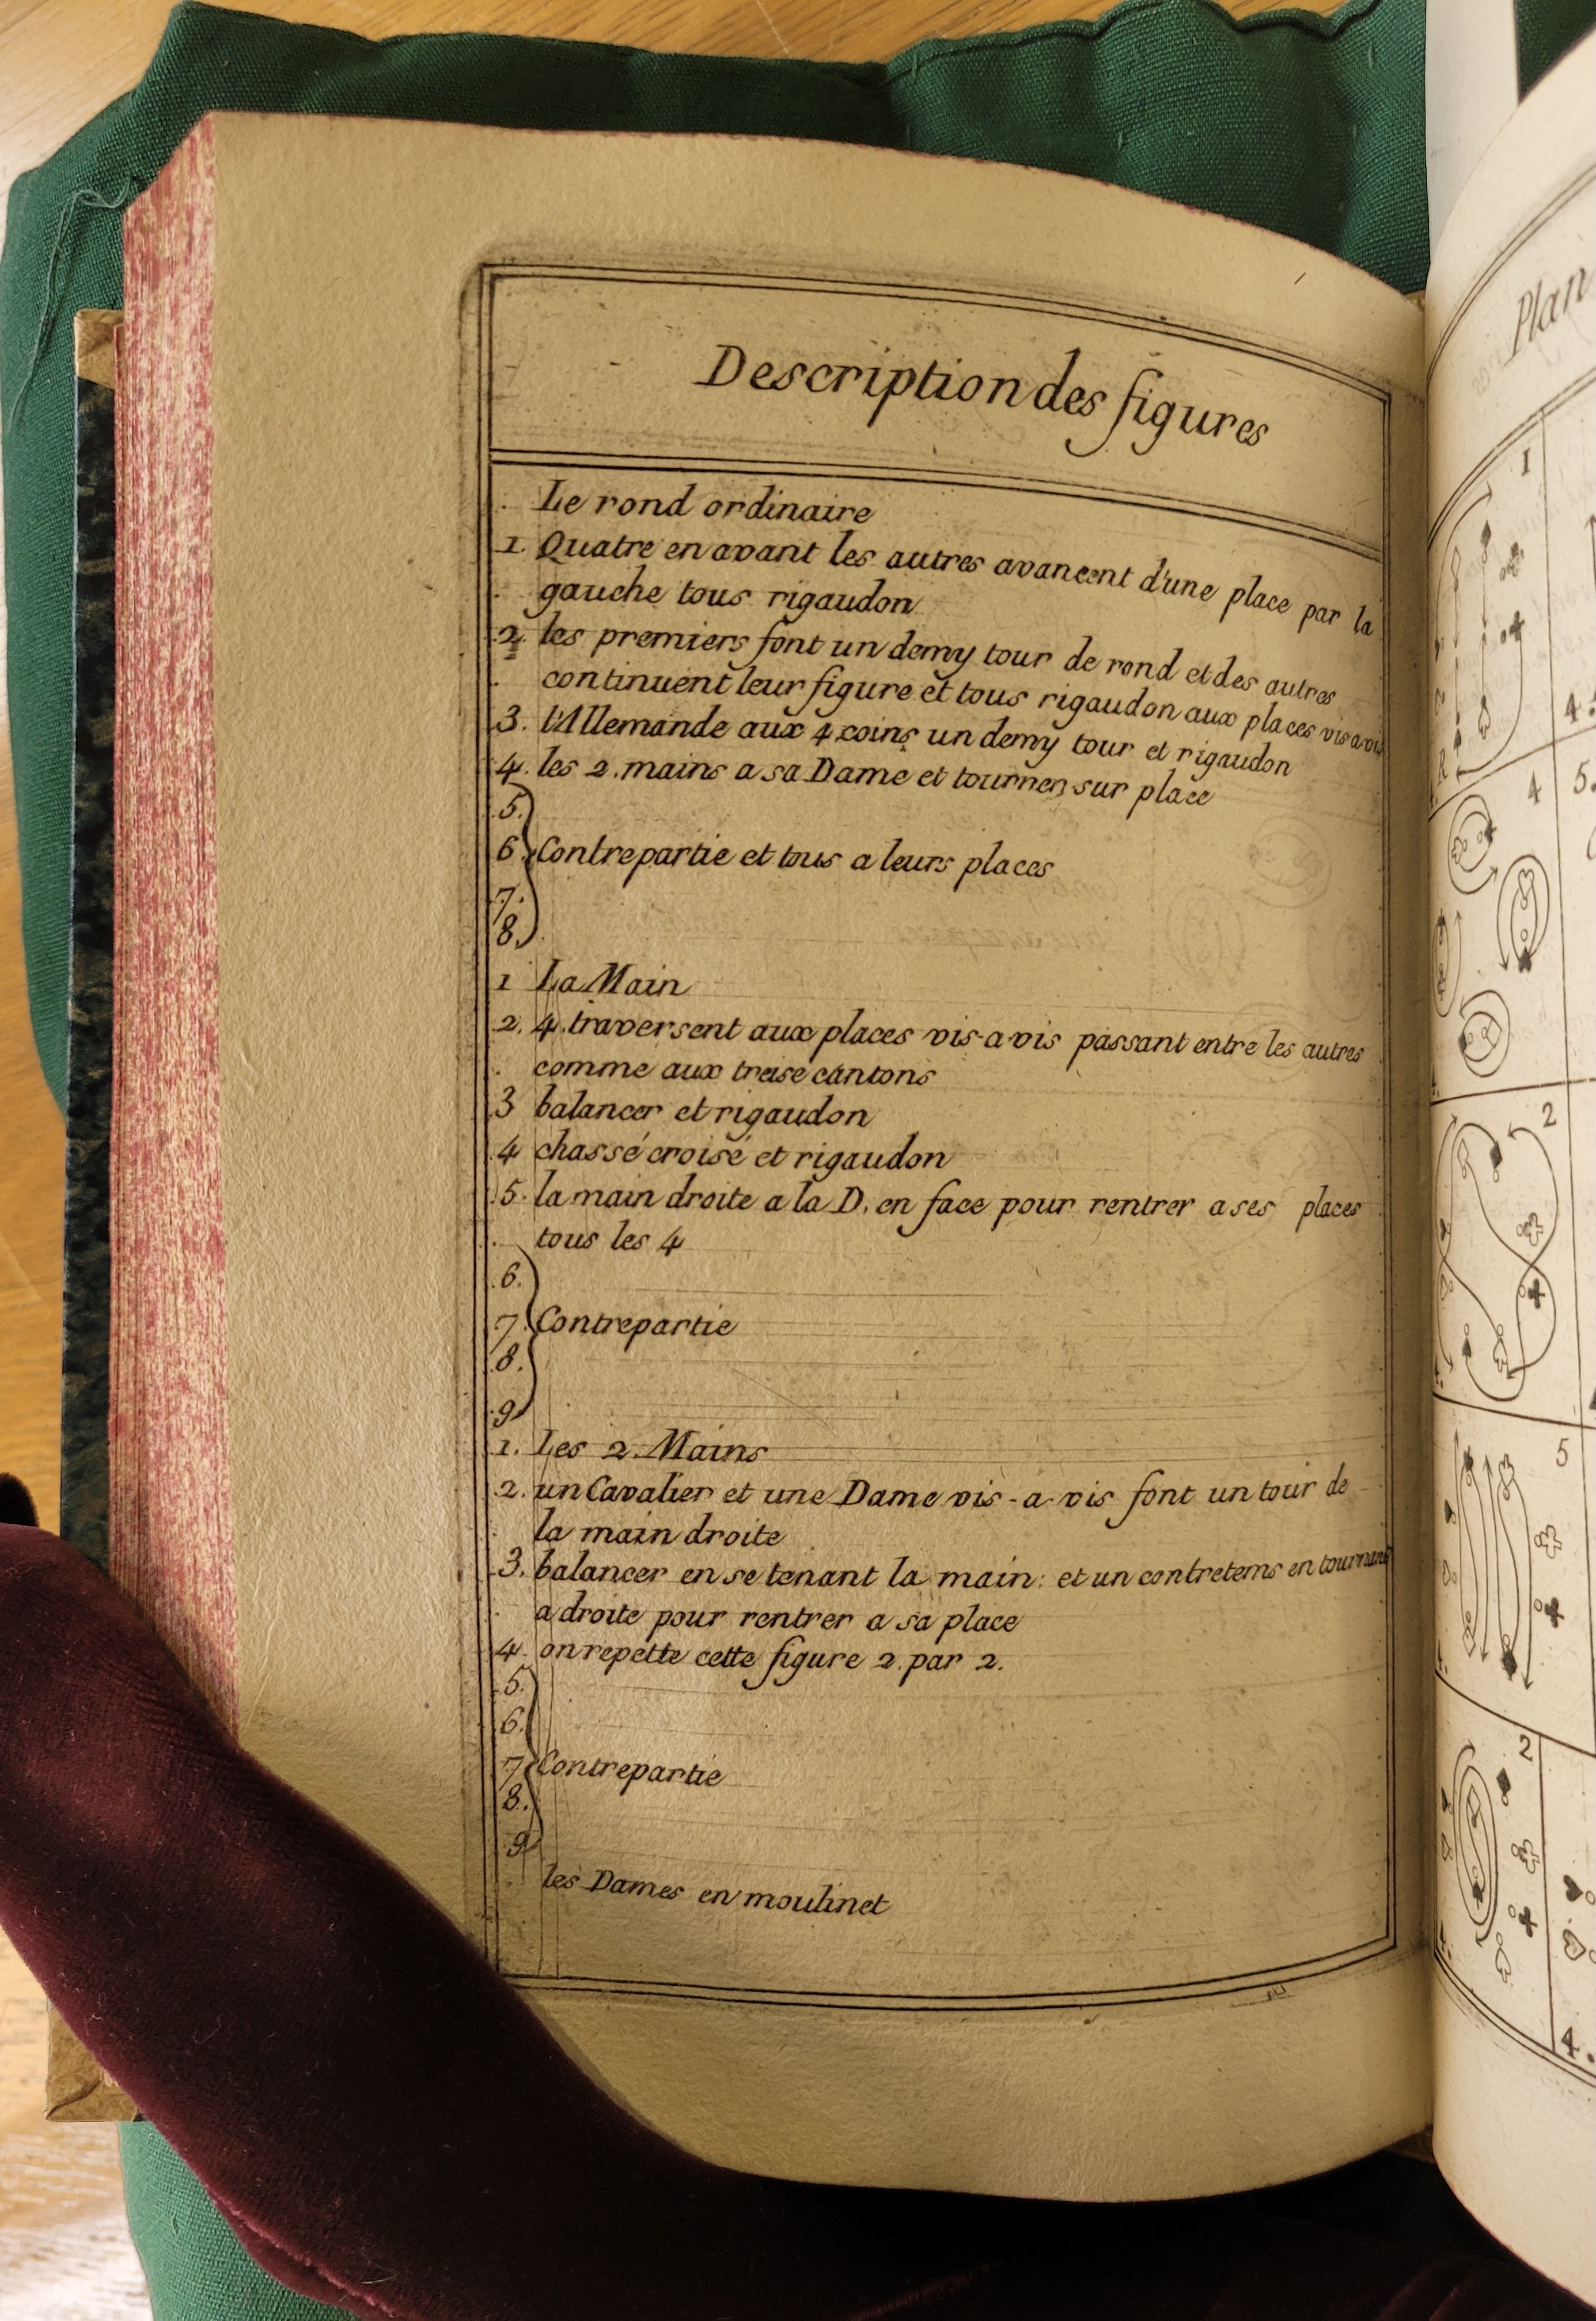 Description des figures
Le rond ordinaire
1. Quatre en avant les autres avancent d'une place par la
gauche tous rigaudon
2. les premiers font un demy tour de rond et des autres
continuent leur figure et tous rigaudon aux places vis a vis
3. l'Allemande aux 4 coins un demy tour et rigaudon
4. les 2. mains a sa Dame et tournen sur place
5.
6. Contrepartie et tous a leurs places
7.
8.
1 La Main
2. 4. traversent aux places vis-a vis passant entre les autres
comme aux treise cantons
3 balancer et rigaudon
4 chassé croisé et rigaudon
5. la main droite a la D. en face pour rentrer a ses places
tous les 4
6.
7. Contrepartie
8.
9
1. Les 2. Mains
2. un Cavalier et une Dame vis-a-vis font un tour de
la main droite
3. balancer en se tenant la main: et un contretems en tournant
a droite pour rentrer a sa place
4. on repette cette figure 2. par 2.
5.
6.
7. Contrepartie
8.
9
les Dames en moulinet
Plan
1
4.
4
5.
2
5
2
4.